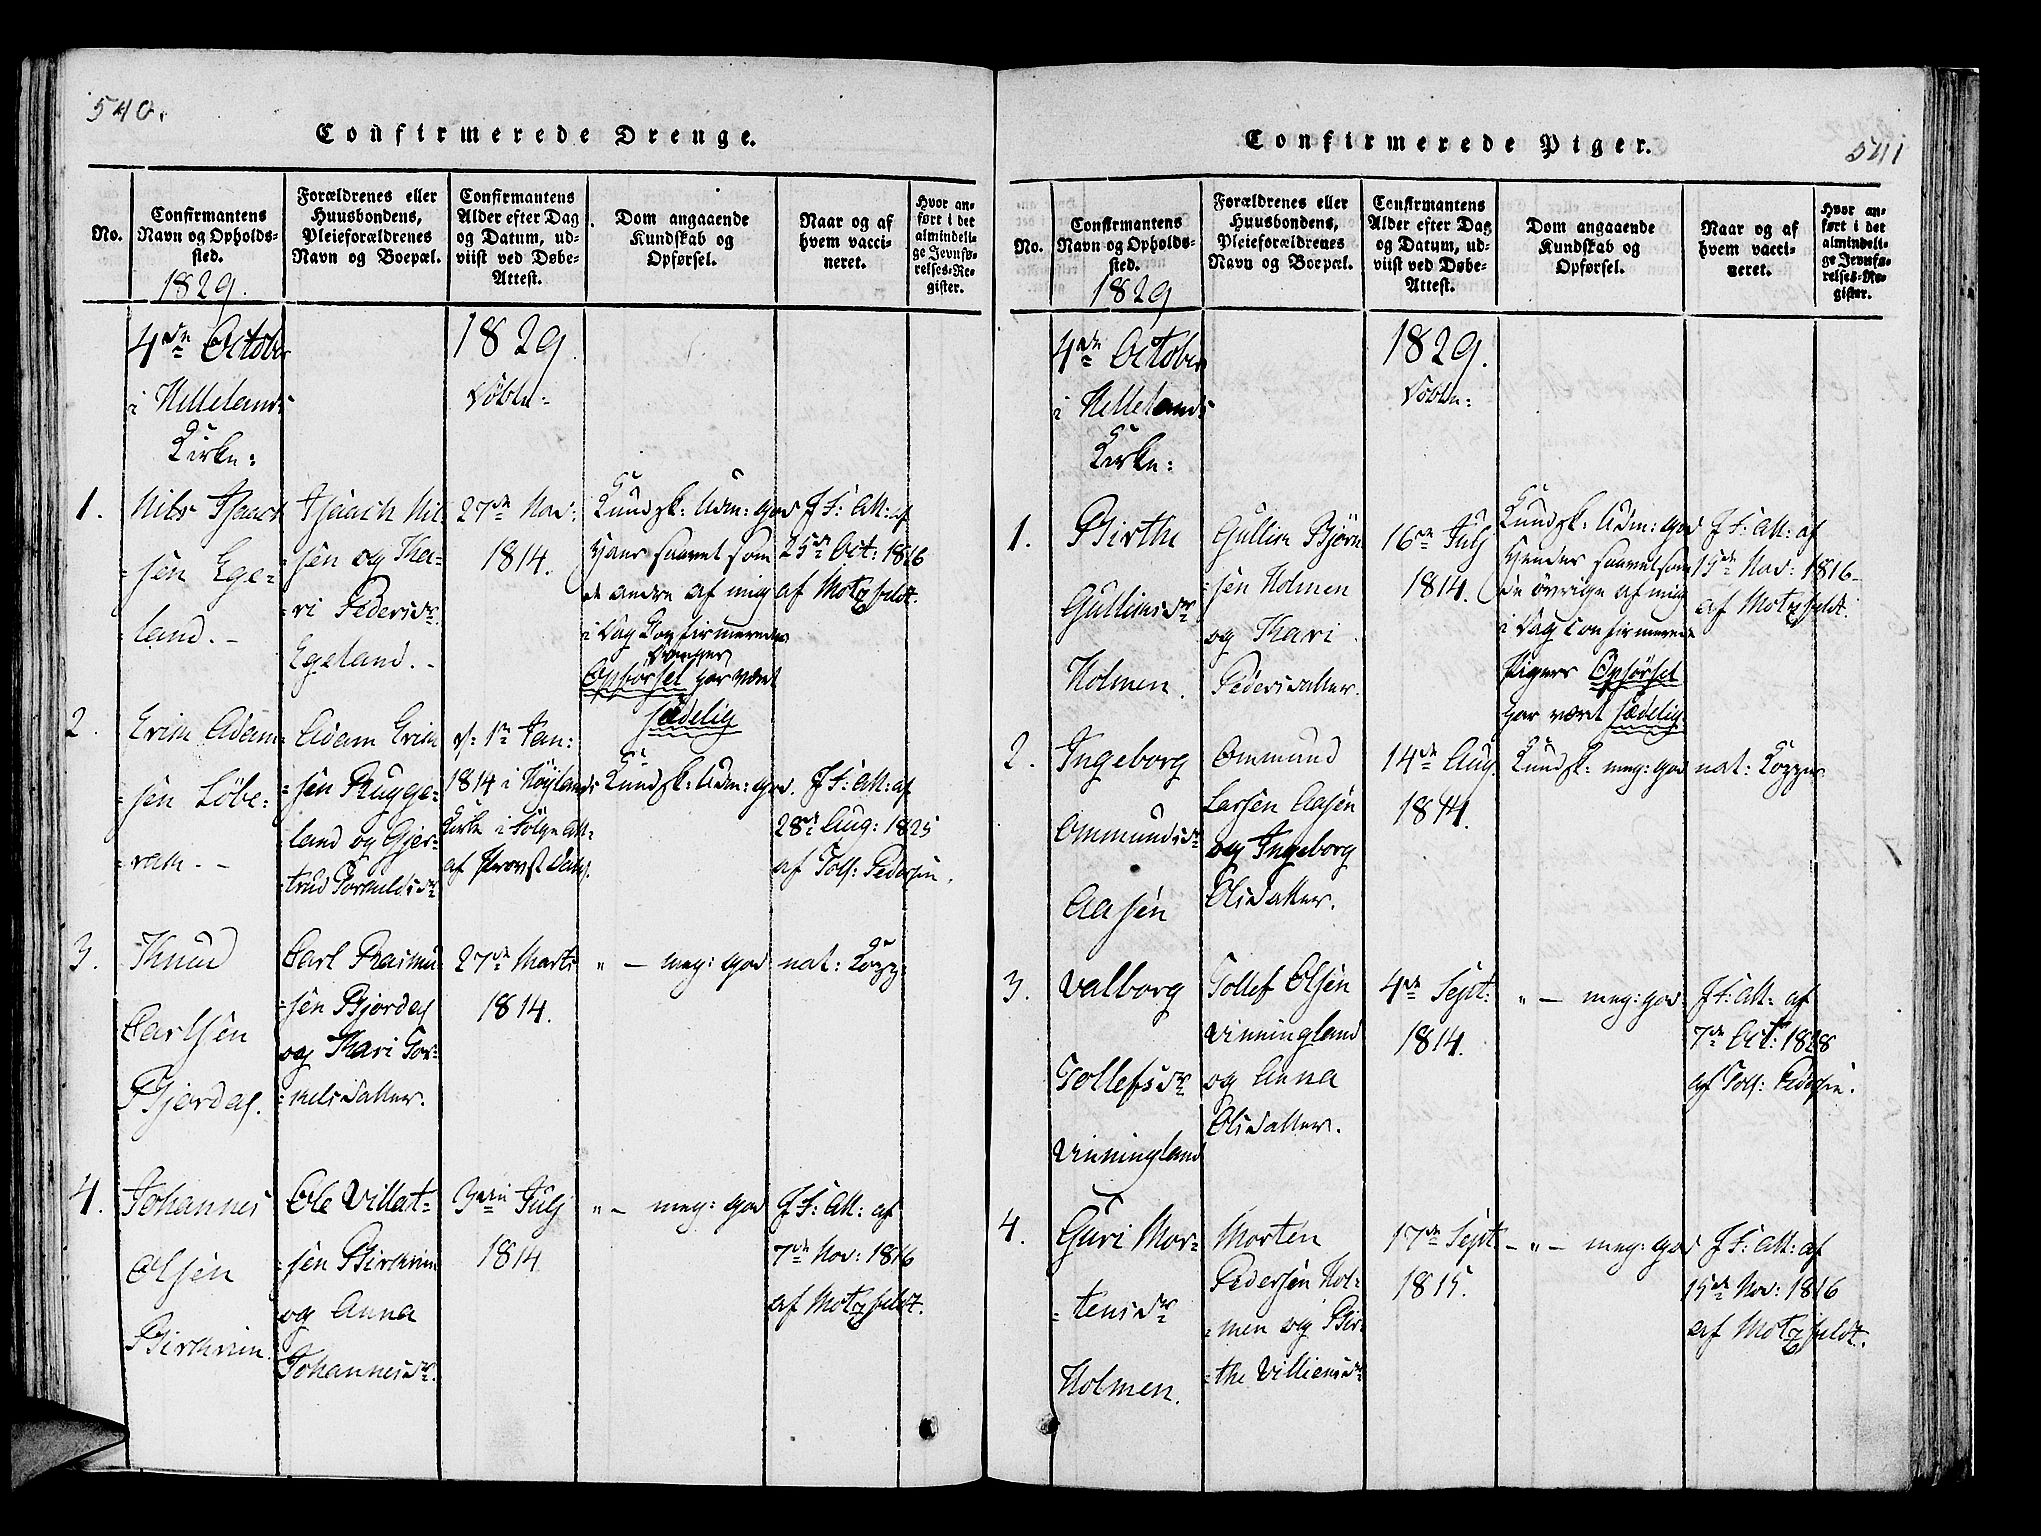 540.
Confirmerede Drenge.
No.
Confirmantens
Navn og Opholds-
sted.
1829.
Forældrenes eller
Huusbondens,
Pleieforældrenes
Navn og Boepæl.
Confirmantens
Alder efter Dag
og Datum, ud-
viist ved Døbe-
Attest.
Dom angaaende
Kundskab og
Opførsel.
Naar og af
hvem vacci-
neret.
Hvor an-
ført i det
almindeli-
ge Jevnfø-
relses-Re-
gister.
4de October
i Hellelands
Kirke:
1829.
Döbte:
1.
Nils Isaach
=sen Ege=
=land. -
Isaach Nil=
=sen og Ka=
=ri Pedersdr.
Egeland. -
27de Nov:
1814.
Kundsk: Udm: god
Hans saavel som
de andre af mig
i Dag Confirmerede
Drenges
Opförsel har været
sædelig
J F: Att: af
25de Oct: 1816
af Motzfeldt.
2.
Erik Adam=
=sen Löbe=
=rak. -
Adam Erik
=sen Rugge=
=land og Gjer=
=trud Tormildsdr
d: 1te Jan:
1814 i Höylands
Kirke i Fölge Att:
af Provst
Kundsk: Udm: god.
J F: Att: af
28de Aug: 1825
af Tolf: Pedersen.
3.
Knud
Carlsen
Bjordal.
Carl Rasmu=
=sen Bjordal
og Kari Tor=
=kelsdatter.
27de Marts
1814.
" - meg: god
nat: Kopp:
4.
Johannes
Olsen
Birkrim.
Ole Villat=
=sen Birkrim
og Anna
Johannesdr.
3die Julj
1814
" - meg: god
J F: Att: af
7de Nov: 1816
af Motzfeldt.
541
Confirmerede Piger.
No.
Confirmantens
Navn og Opholds-
sted.
1829
Forældrenes eller
Huusbondens,
Pleieforældrenes
Navn og Boepæl.
Confirmantens
Alder efter Dag
og Datum, ud-
viist ved Døbe-
Attest.
Dom angaaende
Kundskab og
Opførsel.
Naar og af
hvem vacci-
neret.
Hvor an-
ført i det
almindeli-
ge Jevnfø-
relses-Re-
gister.
4de October
i Hellelands
Kirke:
1829.
Döbte:
1.
Birthe
Gulliksdr
Holmen.
Gullik Björn
=sen Holmen
og Kari
Pedersdatter.
16de Julj
1814.
Kundsk: Udm: god
Hendes saavelsom
de övrige af mig
i Dag Confirmerede
Pigers Opförsel
har været sædelig.
J F: Att: af
15de Nov: 1816
af Motzfeldt.
2.
Ingeborg
Ommundsdr
Aasen
Ommund
Larsen Aasen
og Ingeborg
Olsdatter.
14de Aug
1814.
Kundsk: meg: god
nat: Kopper
3.
Valborg
Tollefsdr
Vinningland
Tollef Olsen
Vinningland
og Anna
Olsdatter.
4de Sept:
1814.
" - meg: god
J F: Att: af
7de Oct: 1828
af Tolf: Pedersen.
4.
Guri Mor=
=tensdr
Holmen.
Morten
Pedersen Hol=
=men og Bir=
=the Villiensdr
17de Sept
1815.
- " - meg: god
J F: Att: af
15de Nov: 1816
af Motzfeldt.